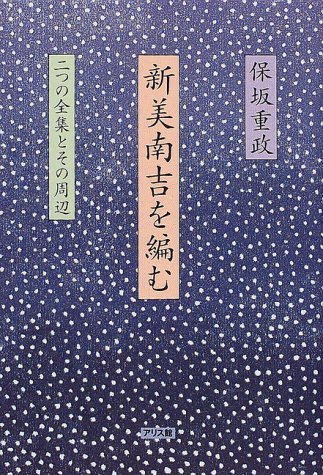 保坂重政
新美南吉を編む
二つの全集とその周辺
アリス館